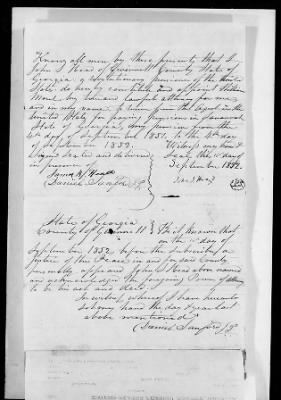 Know all men by these presents that I
John S Head of Gwinnett County State of
Georgia a Revolutionary pensioner of the United
States do hereby constitute and appoint William
my true and lawful attorney for me
and in my name to receive from the agent of the
United States for paying pensions in Savannah
State of Georgia, my pension from the
4th day of September 1851 to the 4th day
of September 1852. Witness my hand &
Signed Sealed and delivered Seal, this day of
in presence of September 1852
Daniel Sanford J.P.
State of Georgia
County of Gwinnett Be it known that
on the day of
September 1852 before the Subscriber a
justice of the Peace in and for said County
personally appeared John S Head above named
and acknowledged the foregoing power of attorney
to be his act and deed.
In witness whereof I have hereunto
set my hand the day & year last
above mentioned
Daniel Sanford J.P.